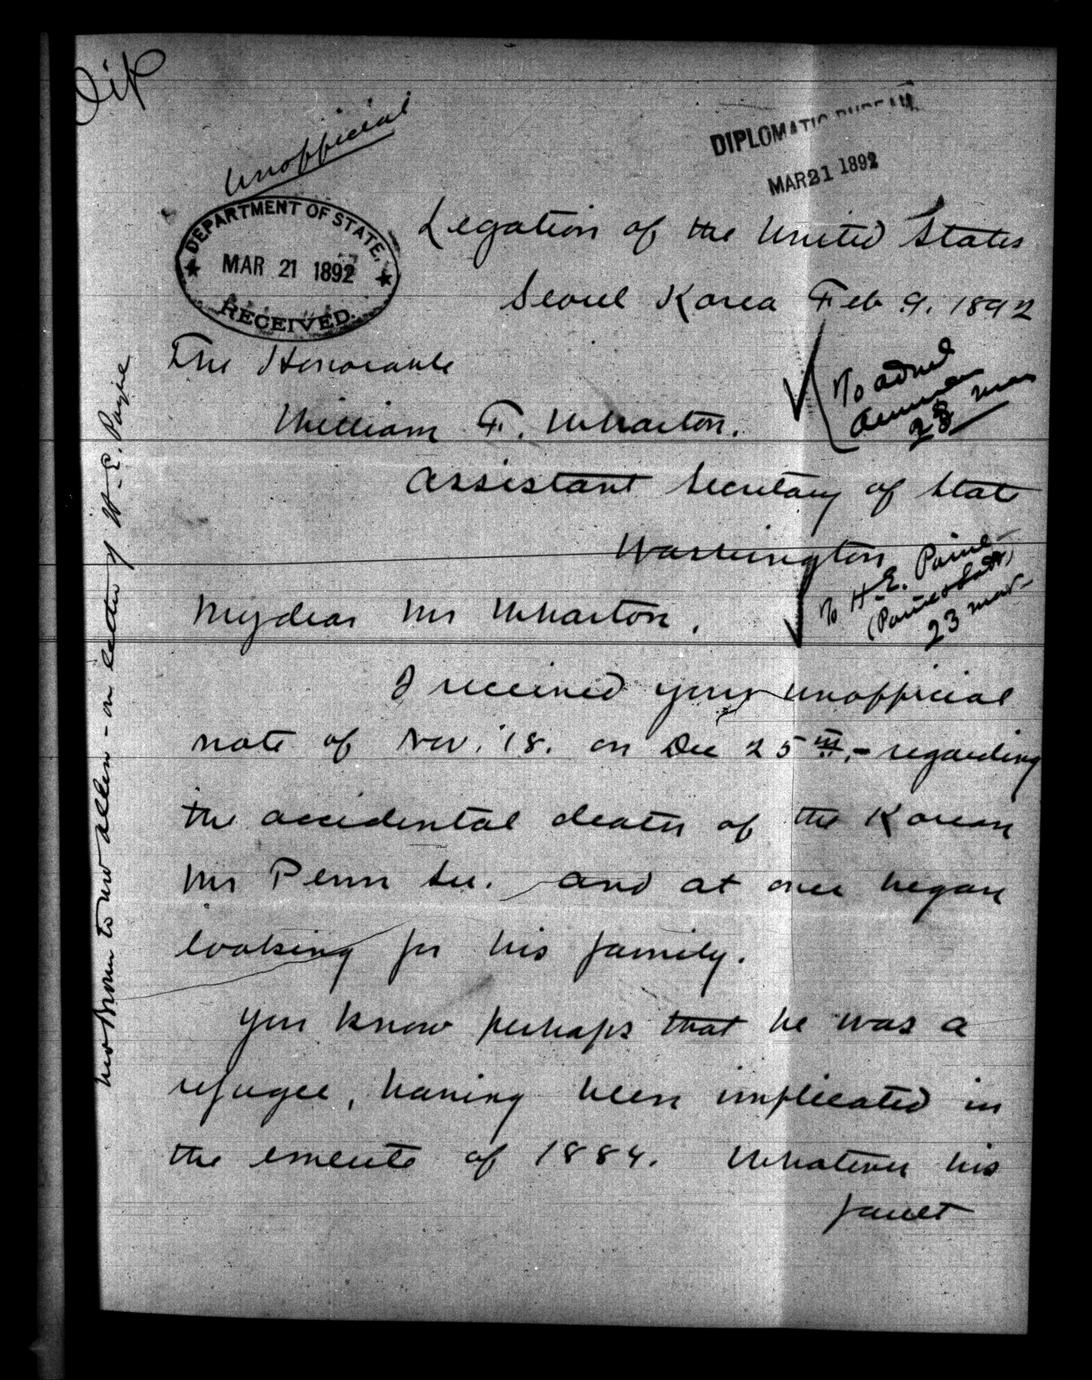 Unofficial
DIPLOMATIC BUREAU
MAR 21 1892
DEPARTMENT OF STATE.
MAR 21 1892
RECEIVED.
Legation of the United States
Seoul Korea Feb 9. 1892
The Honorable
William F. Wharton.
Assistant Secretary of State
Washington
To
23 mar
To H. E. Paine
23 mar
My dear Mr Wharton,
I received your unofficial
note of Nov. 18. on Dec 25th,- regarding
the accidental death of the Korean
Mr Penn Su. and at once began
looking for his family.
You know perhaps that he was a
refugee, having been implicated in
the emeute of 1884. Whatever his
fault
Mrs Brown to Mr Allen - on letter of W. E. Payne